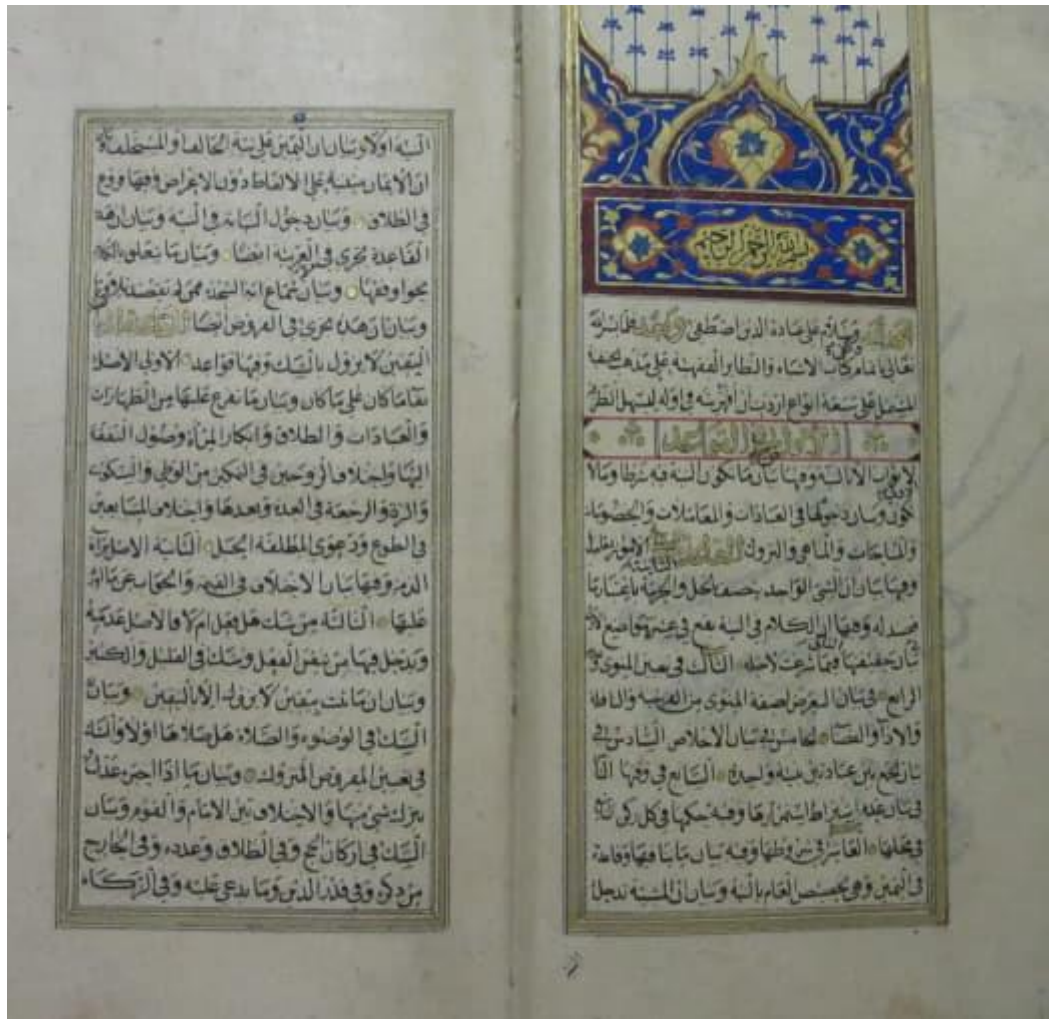 بسم الله الرحمن الرحيم
الحمد لله وسلام على عباده الذين اصطفى وبعد فلما من الله
تعالى باتمام كتاب الاشباه والنظائر الفقهية على مذهب الحنفية
المشتمل على سبعة انواع اردت ان افهرسه في اوله ليسهل النظر
الاول القواعد
لا ثواب الا بالنية وفيها بيان ما تكون النية فيه شرطا وما لا
تكون وبيان دخولها في العبادات والمعاملات والخصومات
والمباحات والمناهي والتروك القاعدة الثانية الامور
وفيها بيان ان الشئ الواحد يتصف بالحل والحرمة باعتبار ما
قصد له وفيها ان الكلام في النية يقع في عشرة مواضع
بيان حقيقتها فيما شرعت لاجله الثالث في تعيين المنوى
الرابع في بيان التعرض لصفة المنوى من الفريضة والنافلة
والاداء والقضاء الخامس في بيان الاخلاص السادس في
بيان الجمع بين عبادتين بنية واحدة السابع في وقتها
في بيان عدم اشتراط استمرارها وفيه حكمها في كل ركن
في محلها العاشر في شروطها وفيه بيان ما ينافيها وقاعدة
في اليمين وهي تخصيص العام بالنية وبيان ان المشية تدخل
النية اولا وبيان ان اليمين على نية الحالف او المستحلف
ان الايمان مبنية على الالفاظ دون الاغراض وفيها وقع
في الطلاق وبيان دخول النيابة في النية وبيان ان هذه
القاعدة تجرى في العربية ايضا وبيان ما يتعلق بالكلام
نحوا وفقها وبيان سماع اية السجدة ممن لم يقصد تلاوتها
وبيان ان هذه تجرى في العروض ايضا القاعدة الثالثة
اليقين لا يزول بالشك وفيها قواعد الاولى الاصل
بقاء ما كان على ما كان وبيان ما تفرع عليها من الطهارات
والعبادات والطلاق وانكار المرأة وصول النفقة
اليها واختلاف الزوجين في التمكين من الوطئ والسكوت
والرد والرجعة في العدة وبعدها واختلاف المتبايعين
في الطوع ودعوى المطلقة الحبل الثانية الاصل براءة
الذمة وفيها بيان الاختلاف في القيمة والجواب عن ما اورد
عليها الثالثة من شك هل فعل ام لا فالاصل عدمه
ويدخل فيها من تيقن الفعل وشك في القليل والكثير
وبيان ان ما ثبت بيقين لا يزول الا باليقين وبيان
الشك في الوضوء والصلاة هل صلاها اولا والشك
في تعيين المفروض المتروك وبيان ما اذا اخبره عدل
بترك شئ منها والاختلاف بين الامام والقوم وبيان
الشك في اركان الحج وفي الطلاق وعدده وفي الخارج
من ذكره وفي قدر الدين وما يدعى عليه وفي الزكاة